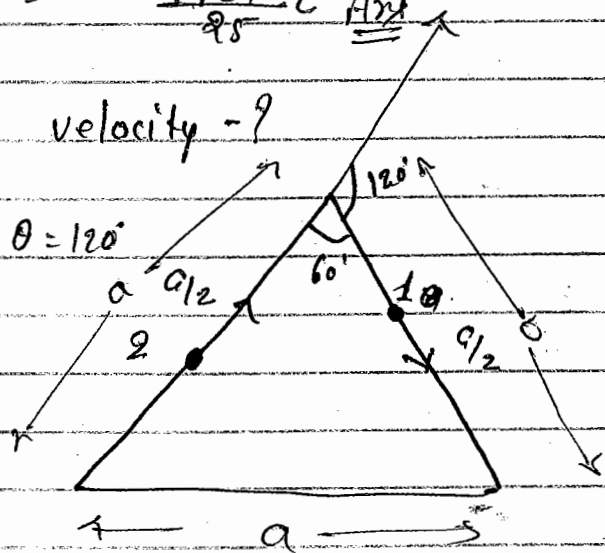 25 c Ans
velocity - ?
θ = 120°
120°
60°
a a/2
2
1
a/2
a